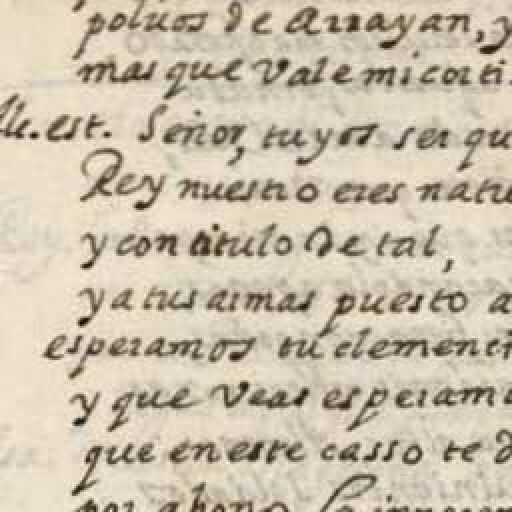 polvos de Arrayan, y
mas que Vale mi corti
est. Señor, tuyos ser qu
Rey nuestro eres natu
y con titulo de tal,
y a tus armas puesto a
esperamos tu clemenci
y que Veas esperamo
que en este casso te d
por abono la innocen